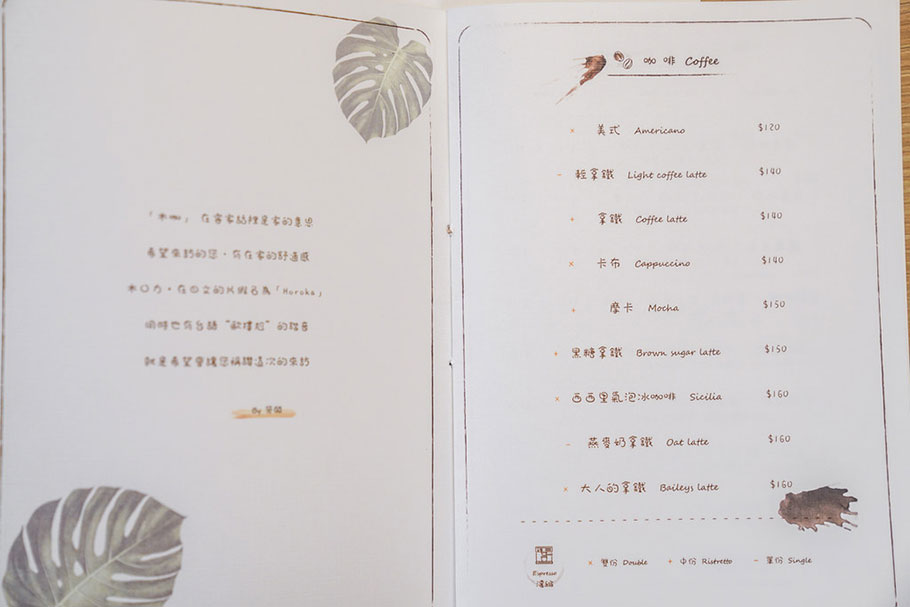 「木咖」 在客家話裡是家的意思
希望來訪的您，有在家的舒適感
木口力，在日文的片假名為「Horoka」
同時也有台語“歐摟尬”的諧音
就是希望會讓您稱讚這次的來訪
By
咖啡 Coffee
× 美式 Americano $120
- 輕拿鐵 Light coffee latte $140
+ 拿鐵 Coffee latte $140
× 卡布 Cappuccino $140
+ 摩卡 Mocha $150
+ 黑糖拿鐵 Brown sugar latte $150
× 西西里氣泡冰咖啡 Sicilia $160
- 燕麥奶拿鐵 Oat latte $160
× 大人的拿鐵 Baileys latte $160
Espresso
濃縮
× 雙份 Double + 中份 Ristretto - 單份 Single